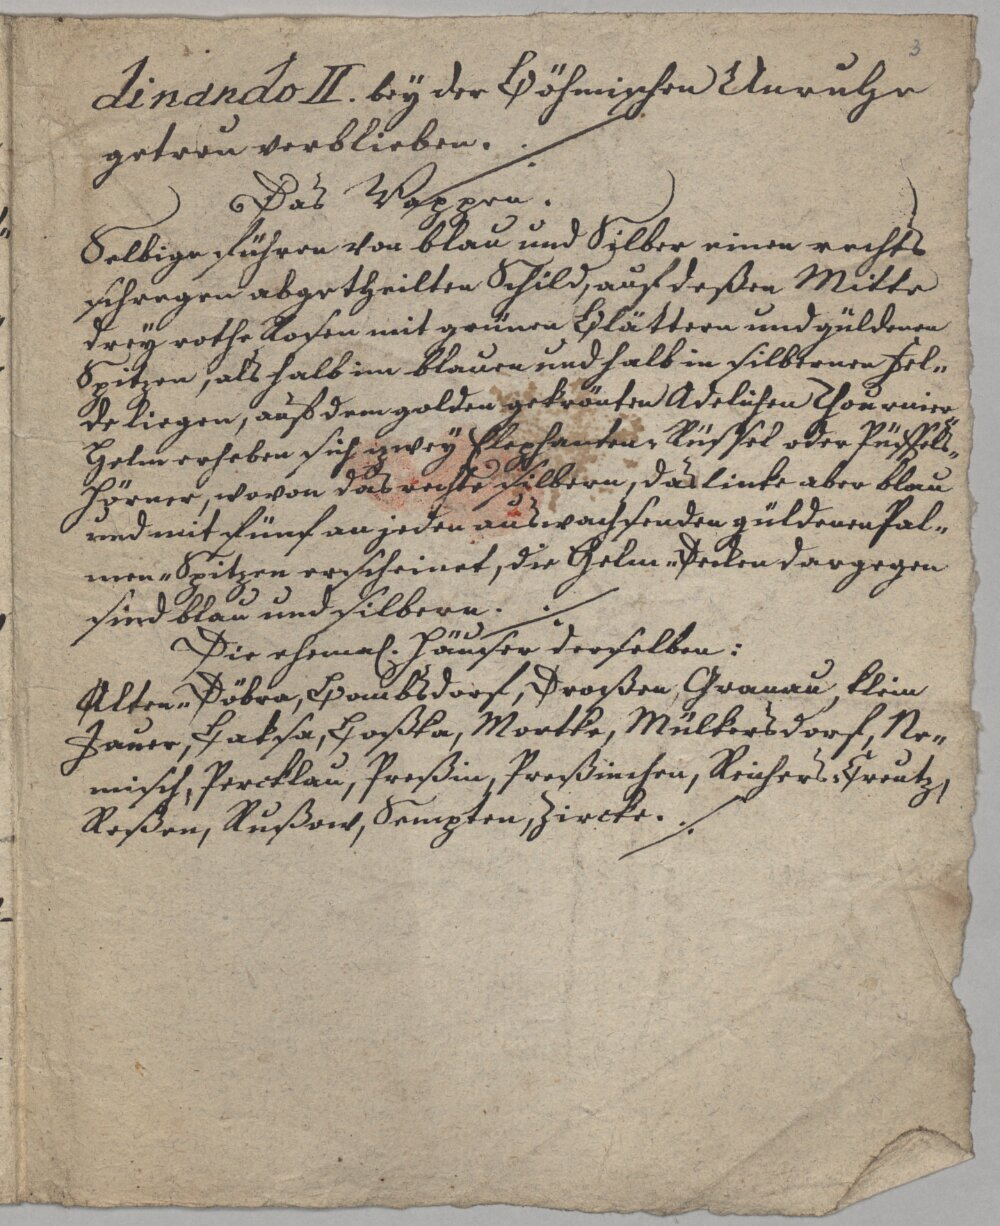 3
dinando II. bey der Böhmischen Unruhe
getreu verblieben.
Das Wappen.
Selbige führen von blau und Silber einen rechts
schregen abgetheilten Schild, auf deßen Mitte
drey rothe Rosen mit grünen Blättern und güldenen
Spitzen, als halb im blauen und halb in silbernen Fel„
de liegen, auß dem golden gekrönten Adelichen Thournier„
Helm erheben sich zwey Elephanten„Rüssel oder Püffels„
Hörner, wovon das rechte silbern, das linke aber blau
und mit fünf an jeden auswachsenden güldenen Pal„
men„Spitzen erscheinet, die Helm„Decken dargegen
sind blau und silbern.
Die ehemal. Häuser derselben:
Alten„Döbra, Bombsdorf, Droßen, Granau, klein
Jauer, Laksa, Loßka, Mortke, Mülkersdorf, Ne„
misch, Percklau, Preßin, Preßinchen, Reichers„Creutz,
Reßen, Rußow, Sempten, Zircke.